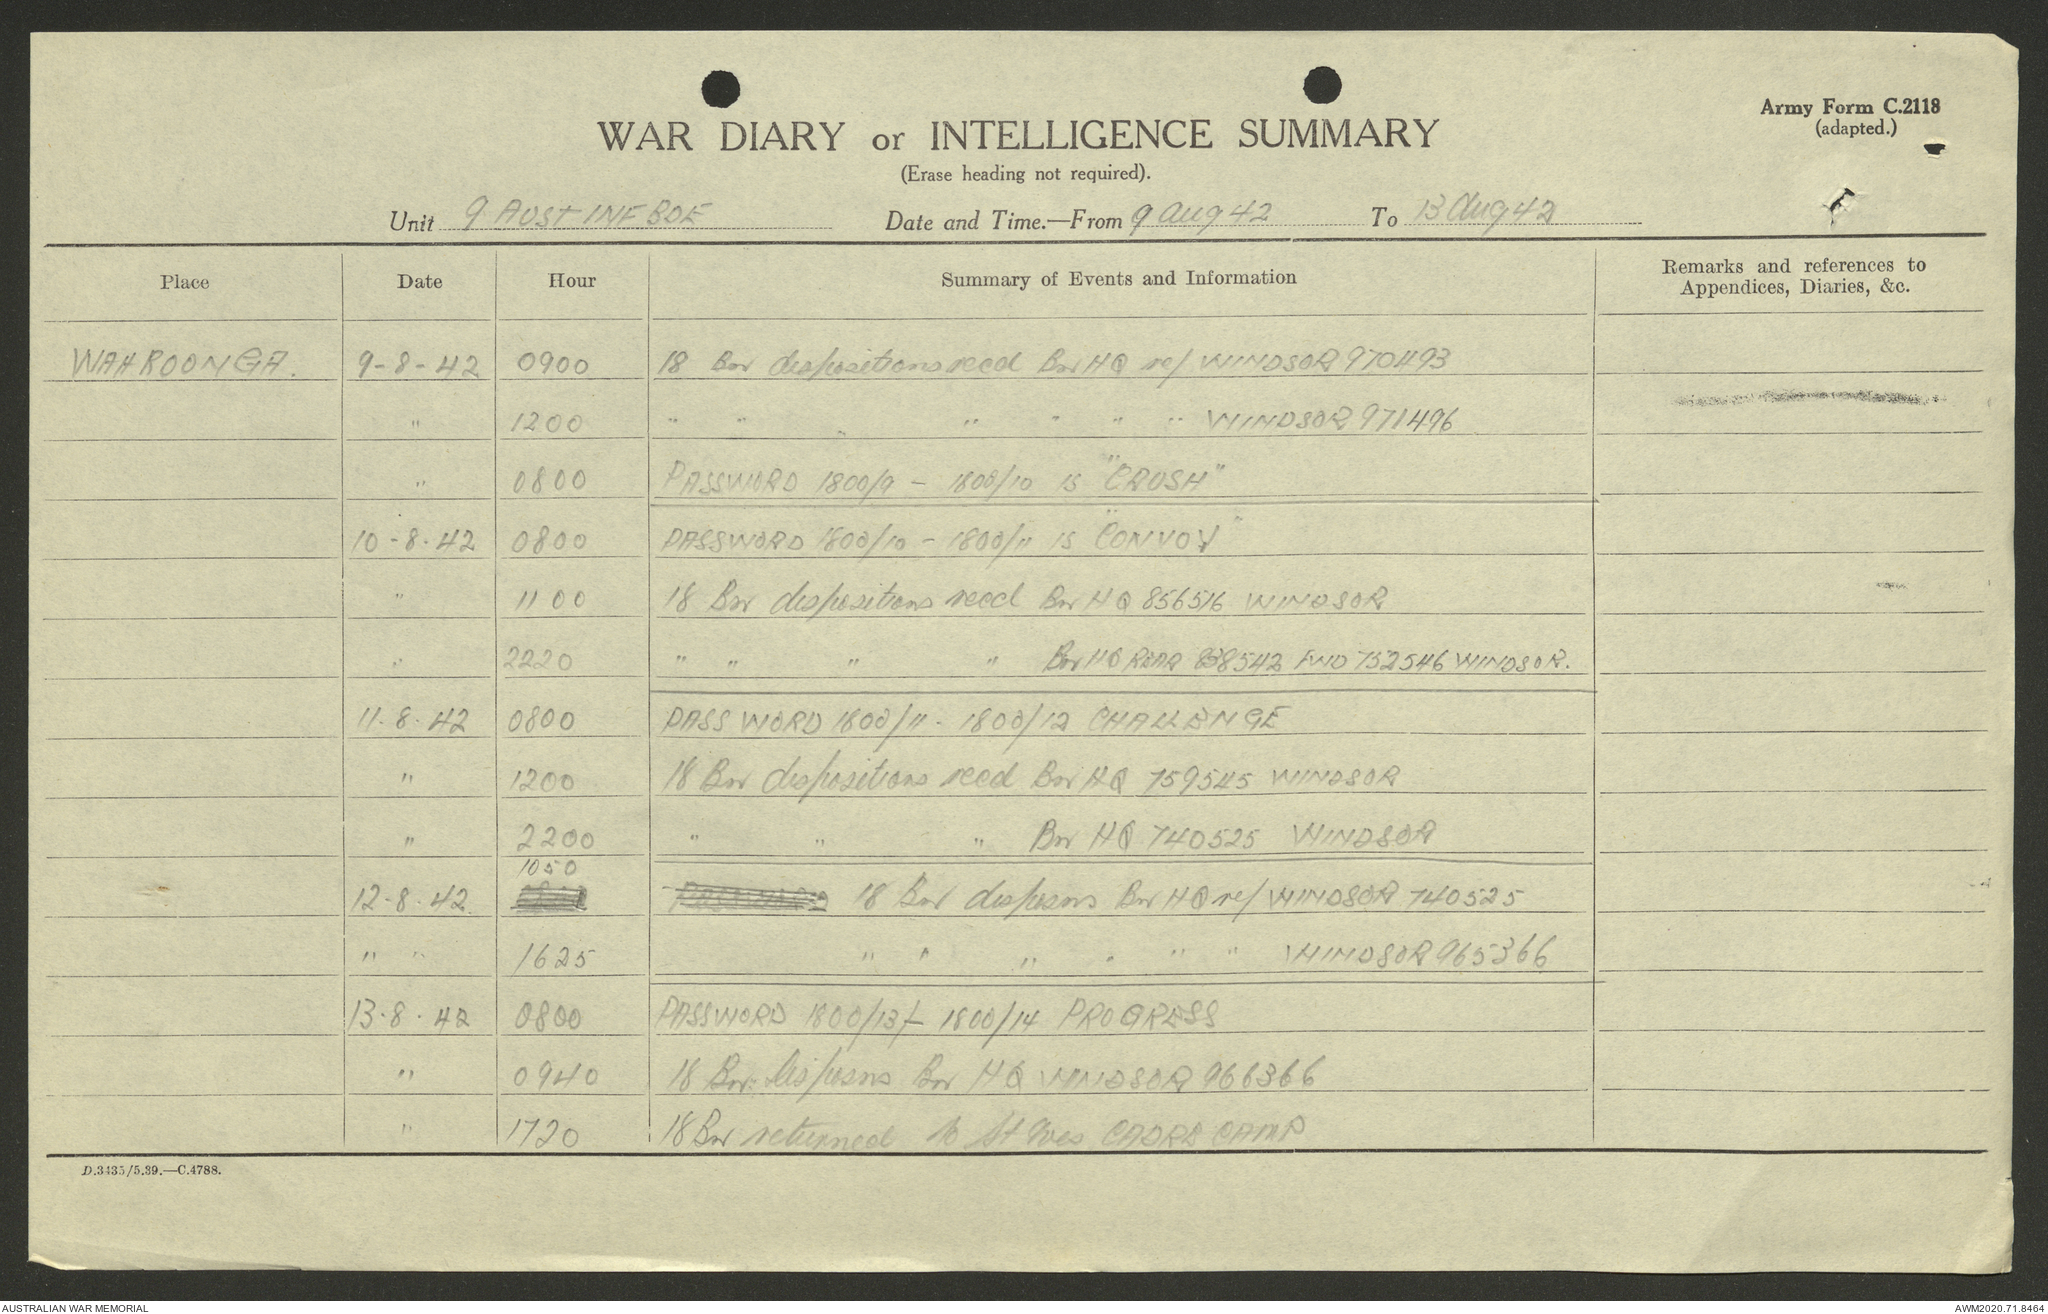 Army Form C.2118
(adapted.)
WAR DIARY or INTELLIGENCE SUMMARY
(Erase heading not required).
Unit 9 AUST INF BDE Date and Time.—From 9 Aug 42 To 13 Aug 42
Place Date Hour Summary of Events and Information Remarks and references to Appendices, Diaries, &c.
WAHROONGA. 9-8-42 0900 18 Bn dispositions recd Bn HQ ref WINDSOR 970493
" 1200 " " " " " " " WINDSOR 971496
" 0800 PASSWORD 1800/9 - 1800/10 is "CRUSH"
10-8-42 0800 PASSWORD 1800/10 - 1800/11 is "CONVOY"
" 1100 18 Bn dispositions recd Bn HQ 856516 WINDSOR
" 2220 " " " " Bn HQ REAR 838542 FWD 752546 WINDSOR.
11-8-42 0800 PASSWORD 1800/11 - 1800/12 CHALLENGE
" 1200 18 Bn dispositions recd Bn HQ 759545 WINDSOR
" 2200 " " " Bn HQ 740525 WINDSOR
12-8-42 1050 18 Bn disposns Bn HQ ref WINDSOR 740525
" " 1625 " " " " " " WINDSOR 965366
13-8-42 0800 PASSWORD 1800/13 - 1800/14 PROGRESS
" 0940 18 Bn. Disposns Bn HQ WINDSOR 966366
" 1720 18 Bn returned to St Ives CADRE CAMP
D.3435/5.39.—C.4788.
AUSTRALIAN WAR MEMORIAL
AWM2020.71.8464